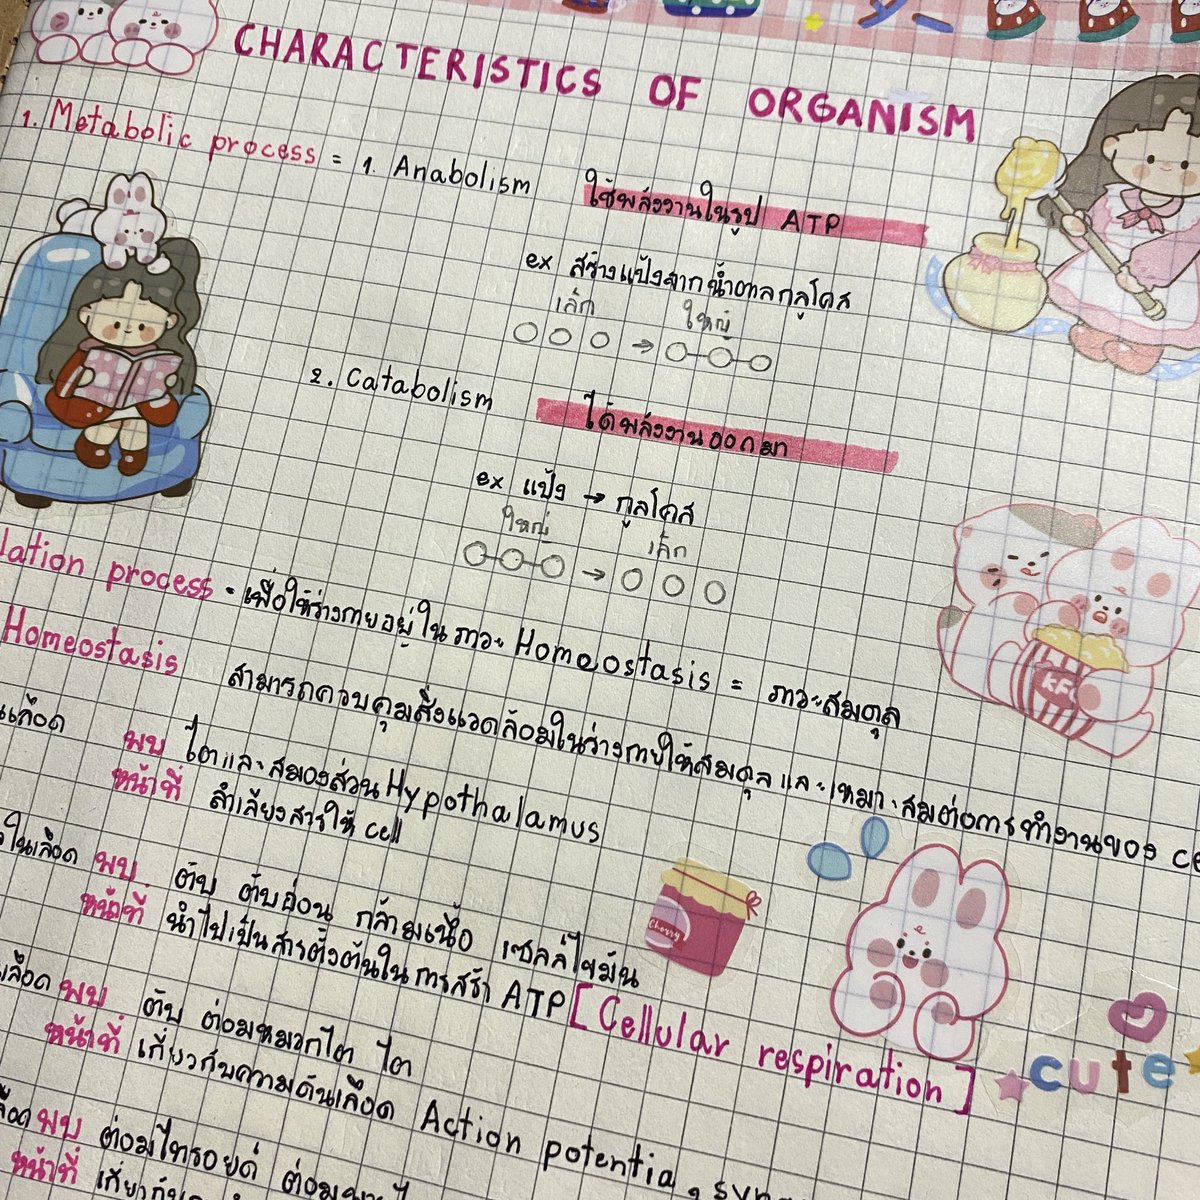 CHARACTERISTICS OF ORGANISM
1. Metabolic process = 1. Anabolism ใช้พลังงานในรูป ATP
ex สร้างแป้งจากน้ำตาลกลูโคส
เล็ก ใหญ่
2. Catabolism ได้พลังงานออกมา
ex แป้ง → กลูโคส
ใหญ่ เล็ก
lation process - เพื่อให้ร่างกายอยู่ใน ภาวะ Homeostasis = ภาวะสมดุล
Homeostasis สามารถควบคุมสิ่งแวดล้อมในร่างกายให้สมดุล และเหมาะสมต่อการทำงานของ ce
นเลือด พบ ไตและสมองส่วน Hypothalamus
หน้าที่ ลำเลียงสารให้ cell
ในเลือด พบ ตับ ตับอ่อน กล้ามเนื้อ เซลล์ไขมัน
หน้าที่ นำไปเป็นสารตั้งต้นใน การสร้า ATP [Cellular respiration]
เลือด พบ ตับ ต่อมหมวกไต ไต
หน้าที่ เกี่ยวกับความดันเลือด Action potentia
ลือด พบ ต่อมไทรอยด์
หน้าที่ เกี่ยวกับ
KFC
Cherry
cute